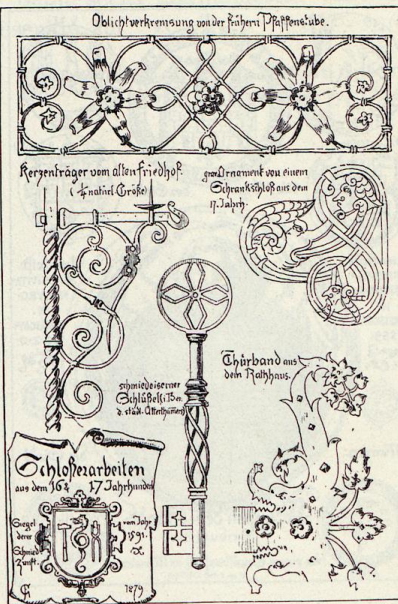 Oblichtverkremsung von der frühern Pfaffenstube.
Kerzenträger vom alten Friedhof.
(¼ natürl. Größe)
grav. Ornament von einem
Schrankschloß aus dem
17. Jahrh.
schmiedeiserner
Schlüßel
d. städt.
Thürband aus
dem Rathhaus.
Schloßerarbeiten
aus dem 16 & 17 Jahrhundert
Siegel
derer
Schmied
Zunft.
vom Jahr
1591.
1879